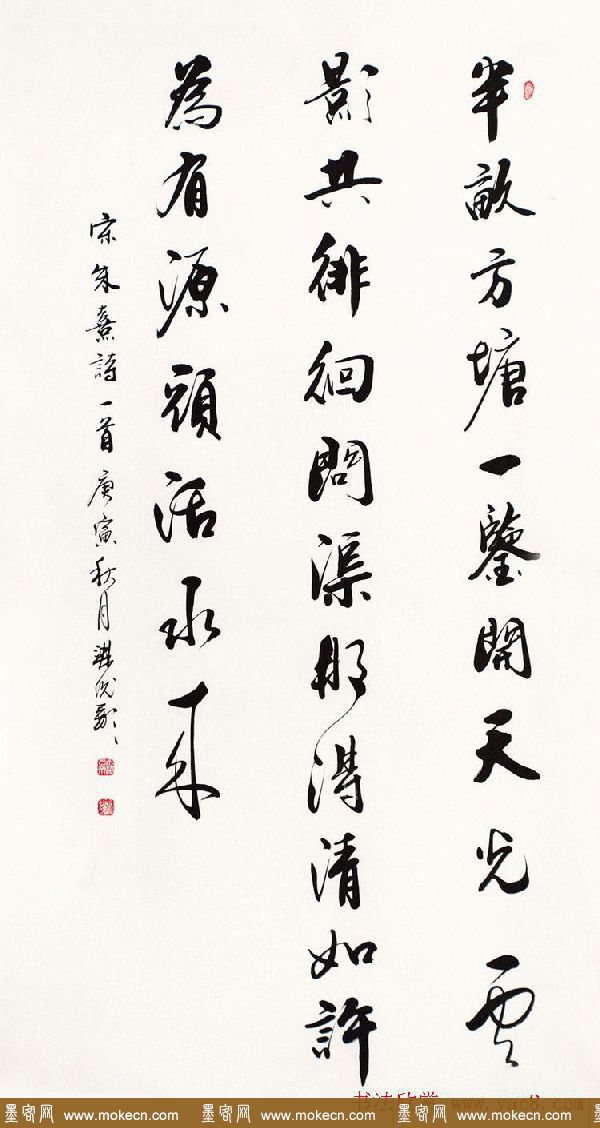 半畝方塘一鑒開天光雲
影共徘徊問渠那得清如許
為有源頭活水來
宋朱熹詩一首庚寅秋月
书法欣赏 www.yac8.com
墨客网 www.mokecn.com 墨客网 www.mokecn.com 墨客网 www.mokecn.com